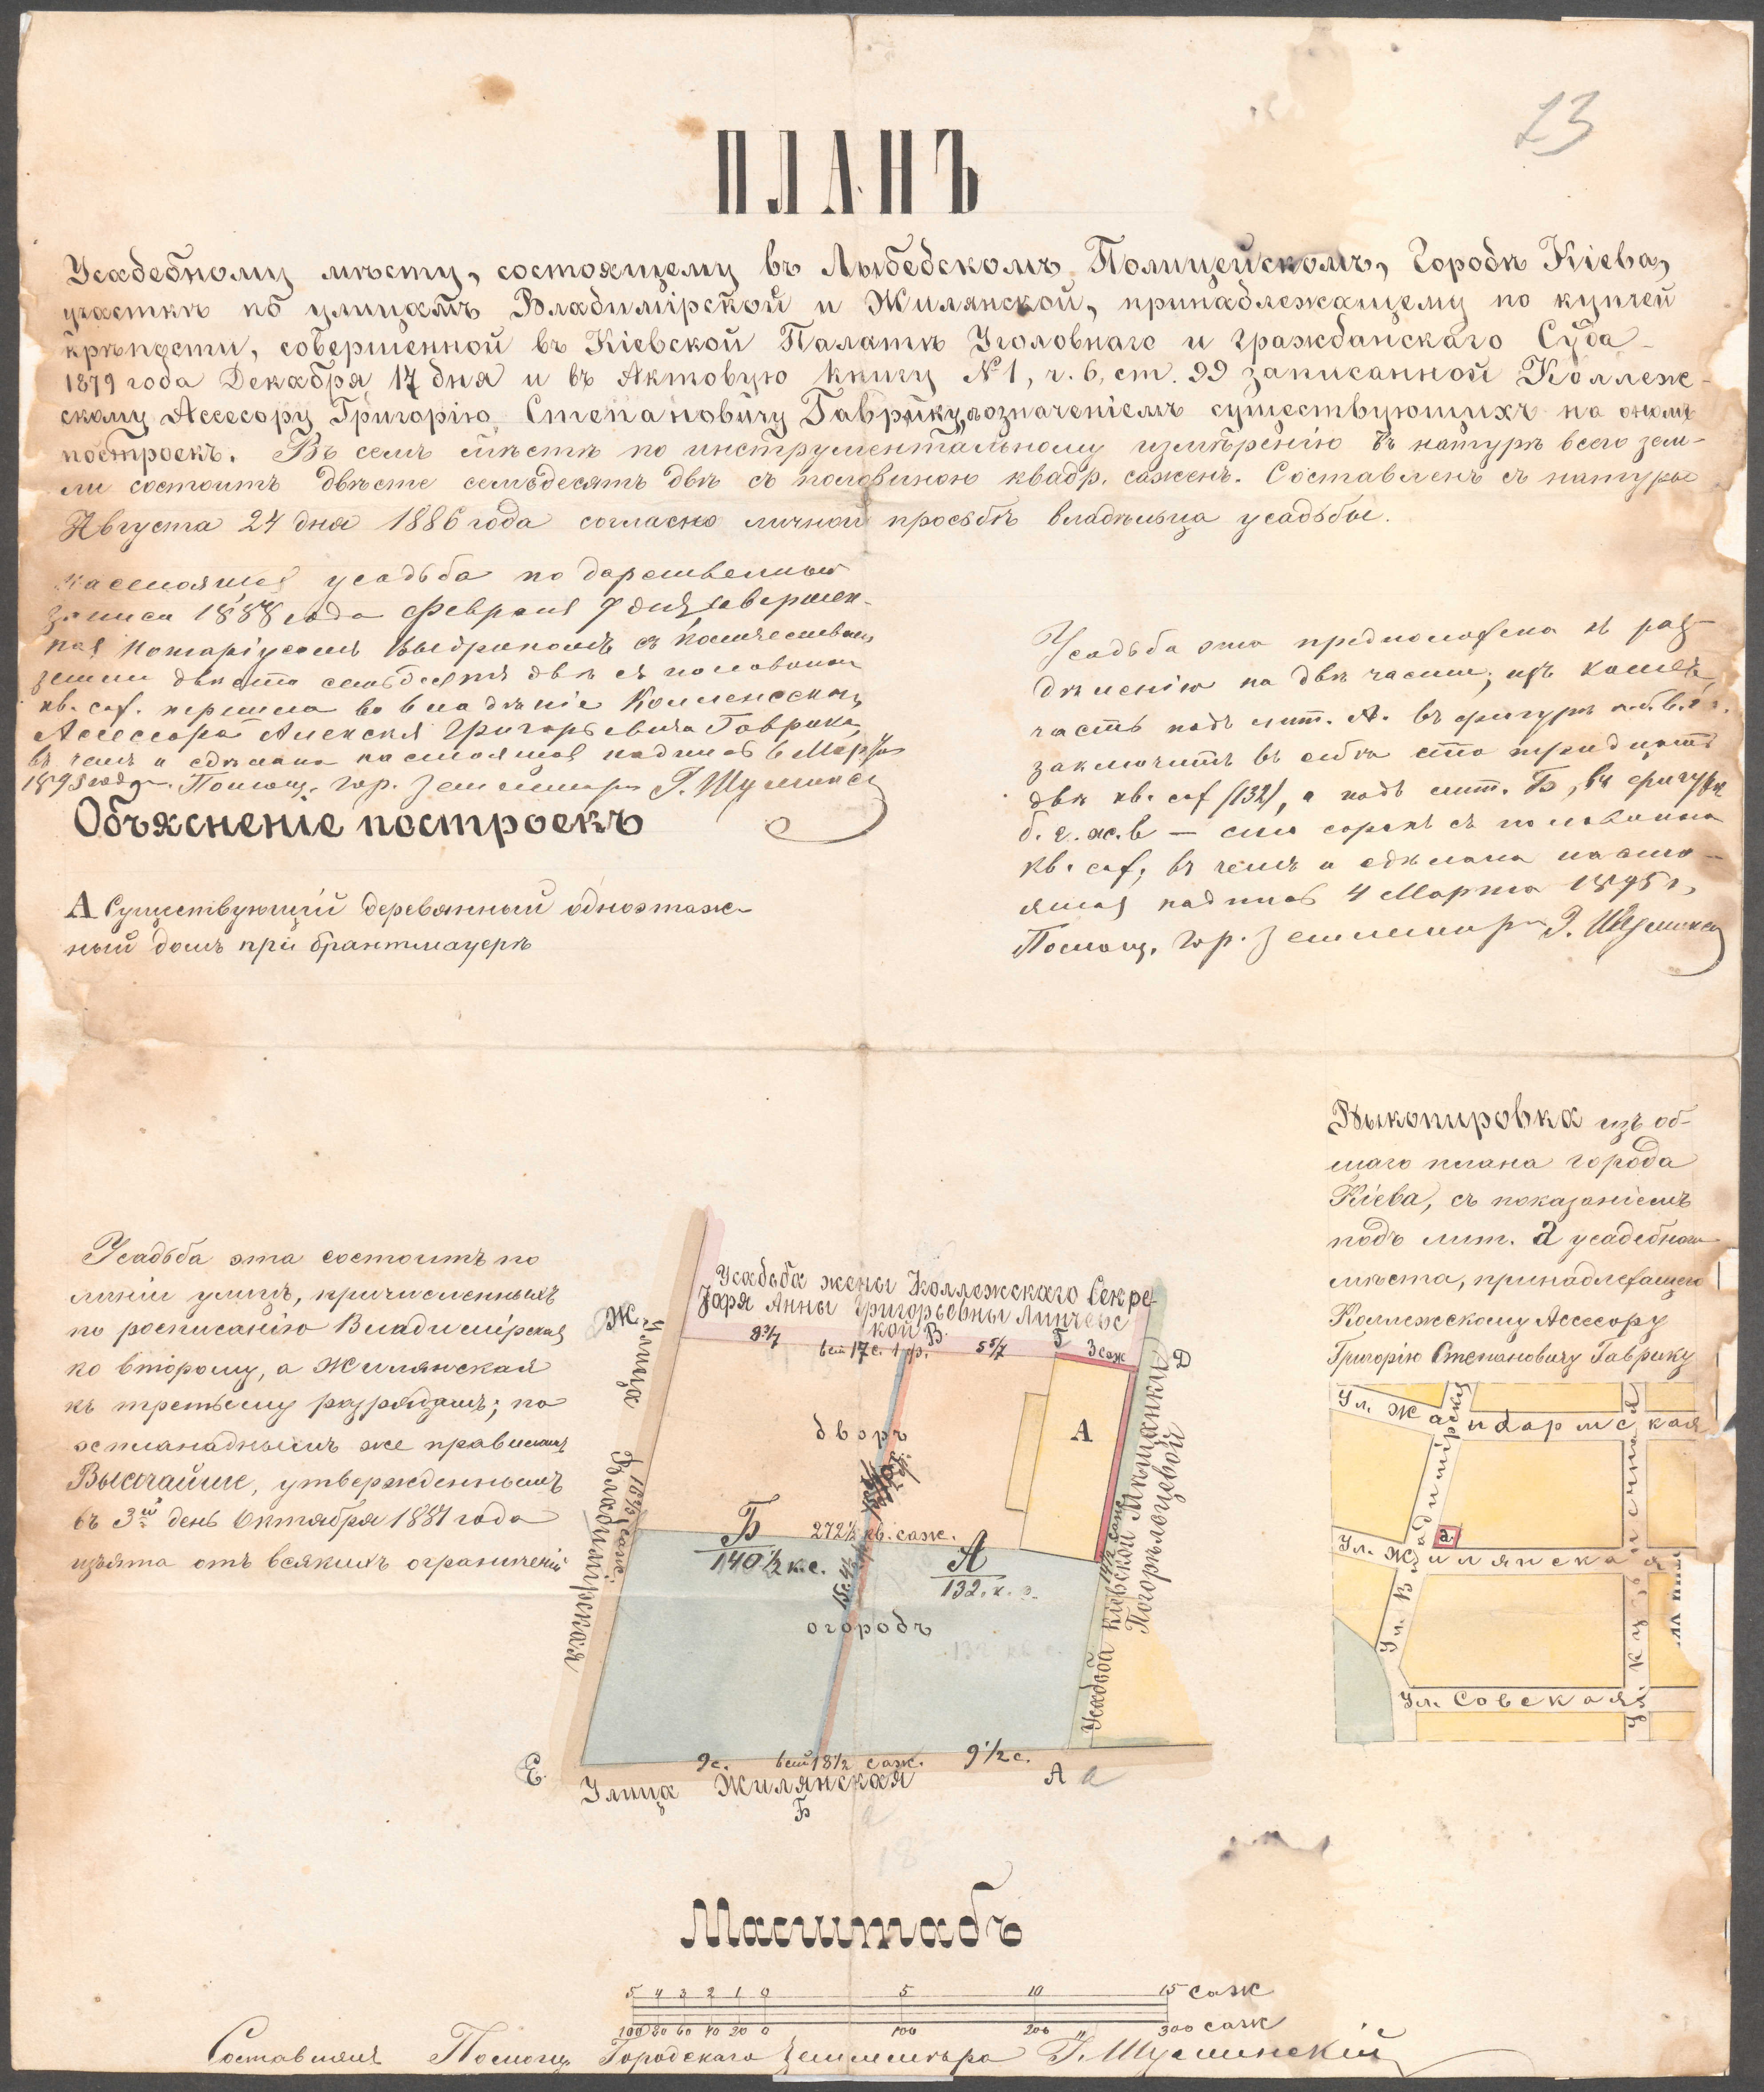 23
ПЛАНЪ
Усадебному мѣсту, состоящему въ Лыбедскомъ Полицейскомъ, Города Кіева,
участкѣ по улицамъ Владимірской и Жилянской, принадлежащему по купчей
крѣпости, совершенной въ Кіевской Палатѣ Уголовнаго и Гражданскаго Суда
1879 года Декабря 17 дня и въ Актовую книгу №1, ч. 6, ст. 99 записанной Коллеж-
скому Ассесору Григорію Степановичу Гаврику, съ означеніемъ существующихъ на ономъ
построекъ. Въ семъ мѣстѣ по инструментальному измѣренію въ натурѣ всего зем-
ли состоитъ двѣсте семьдесятъ двѣ съ половиною квадр. сажень. Составленъ съ натуры
Августа 24 дня 1886 года согласно личной просьбѣ владѣльца усадьбы.
Настоящая усадьба по дарственной
записи 1888 года Февраля 9 дня, совершен-
ная Нотаріусомъ съ количествомъ
земли двѣсти семьдесятъ двѣ съ половиною
кв. саж. перешла во владѣніе Коллежскаго
Ассессора Алексѣя Григорьевича Гаврика,
въ чемъ и сдѣлана настоящая надпись 6 Марта
1895 года. Помощ. гор. Землемѣра Г. Шуминскій
Усадьба эта предположена къ раз-
дѣленію на двѣ части; изъ коихъ,
часть подъ лит. А. въ фигурѣ а.б.в.г.
заключитъ въ себѣ сто тридцать
двѣ кв. саж (132), а подъ лит. Б, въ фигурѣ
б. е. ж. в — сто сорокъ съ половиною
кв. саж; въ чемъ и сдѣлана насто-
ящая надпись 4 Марта 1895 г.
Помощ. гор. Землемѣра Г. Шуминскій
Объясненіе построекъ
А Существующій деревянный одноэтаж-
ный домъ при брантмауерѣ
Выкопировка изъ об-
щаго плана города
Кіева, съ показаніемъ
подъ лит. а усадебнаго
мѣста, принадлежащаго
Коллежскому Ассесору
Григорію Степановичу Гаврику
Усадьба эта состоитъ по
линіи улицъ, причисленныхъ
по росписанію Владимірская
ко второму, а Жилянская
къ третьему разрядамъ; по
эспланаднымъ же правиламъ
Высочайше, утвержденнымъ
въ 3й день Октября 1881 года
изъята отъ всякихъ ограниченій
Усадьба жены Коллежскаго Секре-
таря Анны Григорьевны Липчевс
кой
Ж.
8 3/7
всей 17 с. 1 ф.
В.
5 5/7
Г
3 саж
Д
Улица Владимірская
дворъ
А
Б
140 1/2 к.с.
272 1/2 кв. саж.
А
132. к. с.
огородъ
Усадьба Кіевской Мѣщанки
Погорѣлоцевой
Е.
9 с.
всей 18 1/2 саж.
9 1/2 с.
А а
Улица Жилянская
Б
Ул. Жандармская
Ул. Владимірская
а
Ул. Жилянская
Ул. Кузнечная
Ул. Совская
Масштабъ
5 4 3 2 1 0 5 10 15 саж
100 80 60 40 20 0 100 200 300 саж
Составлялъ Помощ. Городскаго Землемѣра Г. Шуминскій